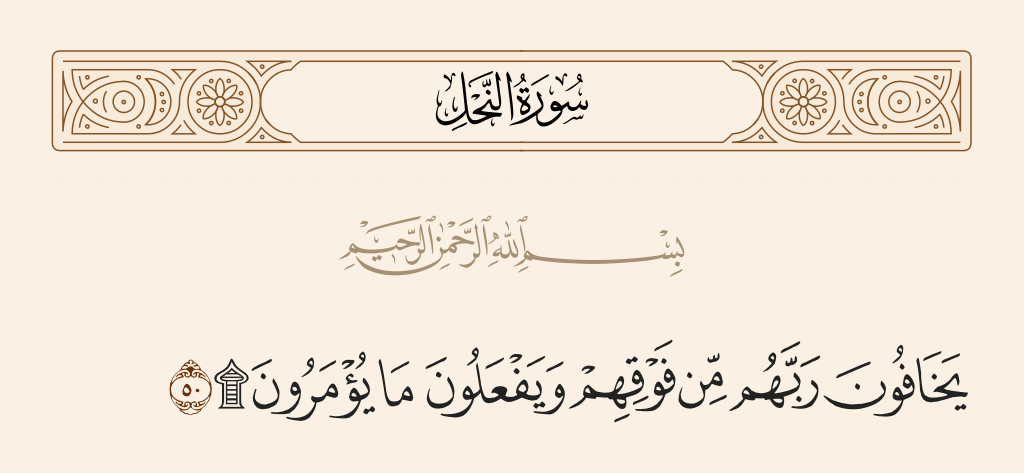 سُورَةُ النَّحْلِ
بِسْمِ ٱللَّهِ ٱلرَّحْمَٰنِ ٱلرَّحِيمِ
يَخَافُونَ رَبَّهُم مِّن فَوْقِهِمْ وَيَفْعَلُونَ مَا يُؤْمَرُونَ ۩ ٥٠